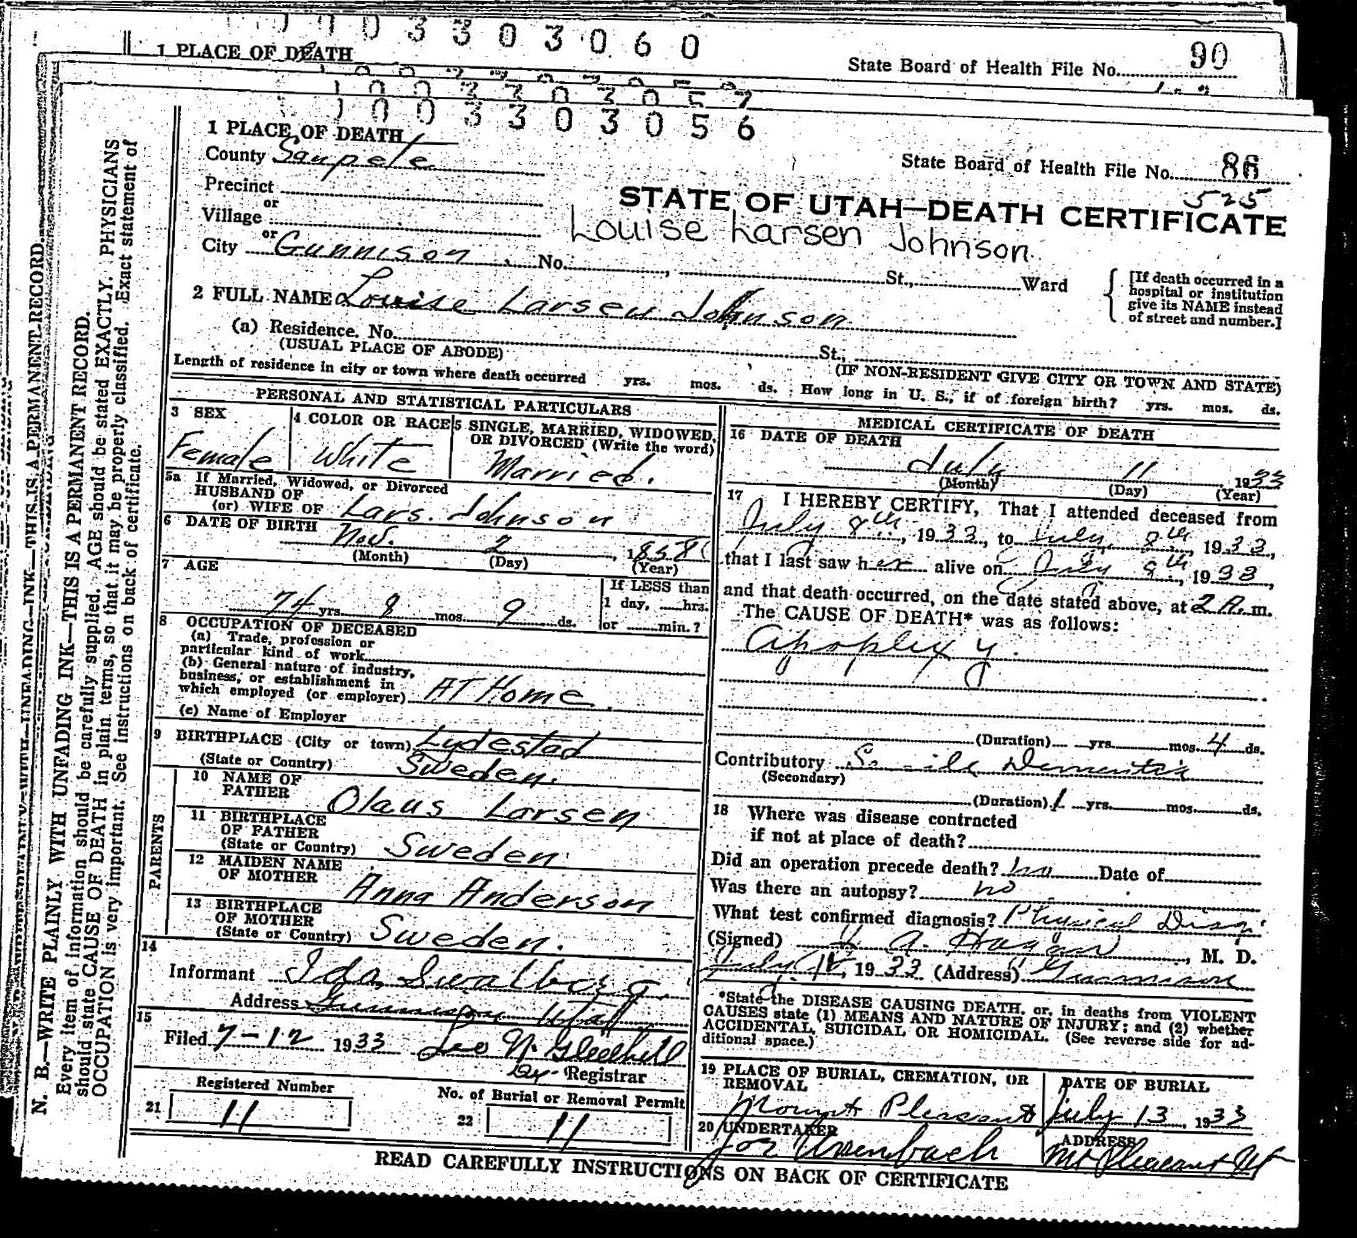 1 0 0 3 3 0 3 0 6 0
1 PLACE OF DEATH
State Board of Health File No. 90
1 0 0 3 3 0 3 0 5 7
1 0 0 3 3 0 3 0 5 6
1 PLACE OF DEATH
County Sanpete
State Board of Health File No. 86
525
Precinct
or
Village
STATE OF UTAH—DEATH CERTIFICATE
Louise Larsen Johnson
or
City Gunnison No. St., Ward
[If death occurred in a
hospital or institution
give its NAME instead
of street and number.]
2 FULL NAME Louise Larsen Johnson
(a) Residence. No. St.,
(USUAL PLACE OF ABODE) (IF NON-RESIDENT GIVE CITY OR TOWN AND STATE)
Length of residence in city or town where death occurred yrs. mos. ds. How long in U. S., if of foreign birth? yrs. mos. ds.
PERSONAL AND STATISTICAL PARTICULARS
3 SEX
Female
4 COLOR OR RACE
White
5 SINGLE, MARRIED, WIDOWED,
OR DIVORCED (Write the word)
Married.
5a If Married, Widowed, or Divorced
HUSBAND OF
(or) WIFE OF Lars. Johnson
6 DATE OF BIRTH Nov. 2, 1858
(Month) (Day) (Year)
7 AGE
74 yrs. 8 mos. 9 ds.
If LESS than
1 day, hrs.
or min.?
8 OCCUPATION OF DECEASED
(a) Trade, profession or
particular kind of work
(b) General nature of industry,
business, or establishment in
which employed (or employer) At Home.
(c) Name of Employer
9 BIRTHPLACE (City or town) Lydestad
(State or Country) Sweden.
PARENTS
10 NAME OF
FATHER Olaus Larsen
11 BIRTHPLACE
OF FATHER
(State or Country) Sweden.
12 MAIDEN NAME
OF MOTHER Anna Anderson
13 BIRTHPLACE
OF MOTHER
(State or Country) Sweden.
14
Informant Ida Swalberg.
Address Gunnison Utah
15
Filed 7-12 1933 Leo N. Gledhill
Registrar
Registered Number
21 11
No. of Burial or Removal Permit
22 11
MEDICAL CERTIFICATE OF DEATH
16 DATE OF DEATH
July 11 1933
(Month) (Day) (Year)
17 I HEREBY CERTIFY, That I attended deceased from
July 8th, 1933, to July 8th, 1933,
that I last saw her alive on July 8th, 1933,
and that death occurred, on the date stated above, at 2 A. m.
The CAUSE OF DEATH* was as follows:
Apoplexy.
(Duration) yrs. mos. 4 ds.
Contributory Senile Dementia
(Secondary)
(Duration) 1 yrs. mos. ds.
18 Where was disease contracted
if not at place of death?
Did an operation precede death? no Date of
Was there an autopsy? no
What test confirmed diagnosis? Physical Diag.
(Signed) A. Hagan, M. D.
July 12, 1933 (Address) Gunnison
*State the DISEASE CAUSING DEATH, or, in deaths from VIOLENT
CAUSES state (1) MEANS AND NATURE OF INJURY; and (2) whether
ACCIDENTAL, SUICIDAL OR HOMICIDAL. (See reverse side for ad-
ditional space.)
19 PLACE OF BURIAL, CREMATION, OR
REMOVAL
Mount Pleasant
DATE OF BURIAL
July 13, 1933
20 UNDERTAKER
ADDRESS
Mt Pleasant Ut
READ CAREFULLY INSTRUCTIONS ON BACK OF CERTIFICATE
N. B.—WRITE PLAINLY WITH UNFADING INK—THIS IS A PERMANENT RECORD.
Every item of information should be carefully supplied. AGE should be stated EXACTLY. PHYSICIANS
should state CAUSE OF DEATH in plain terms, so that it may be properly classified. Exact statement of
OCCUPATION is very important. See instructions on back of certificate.